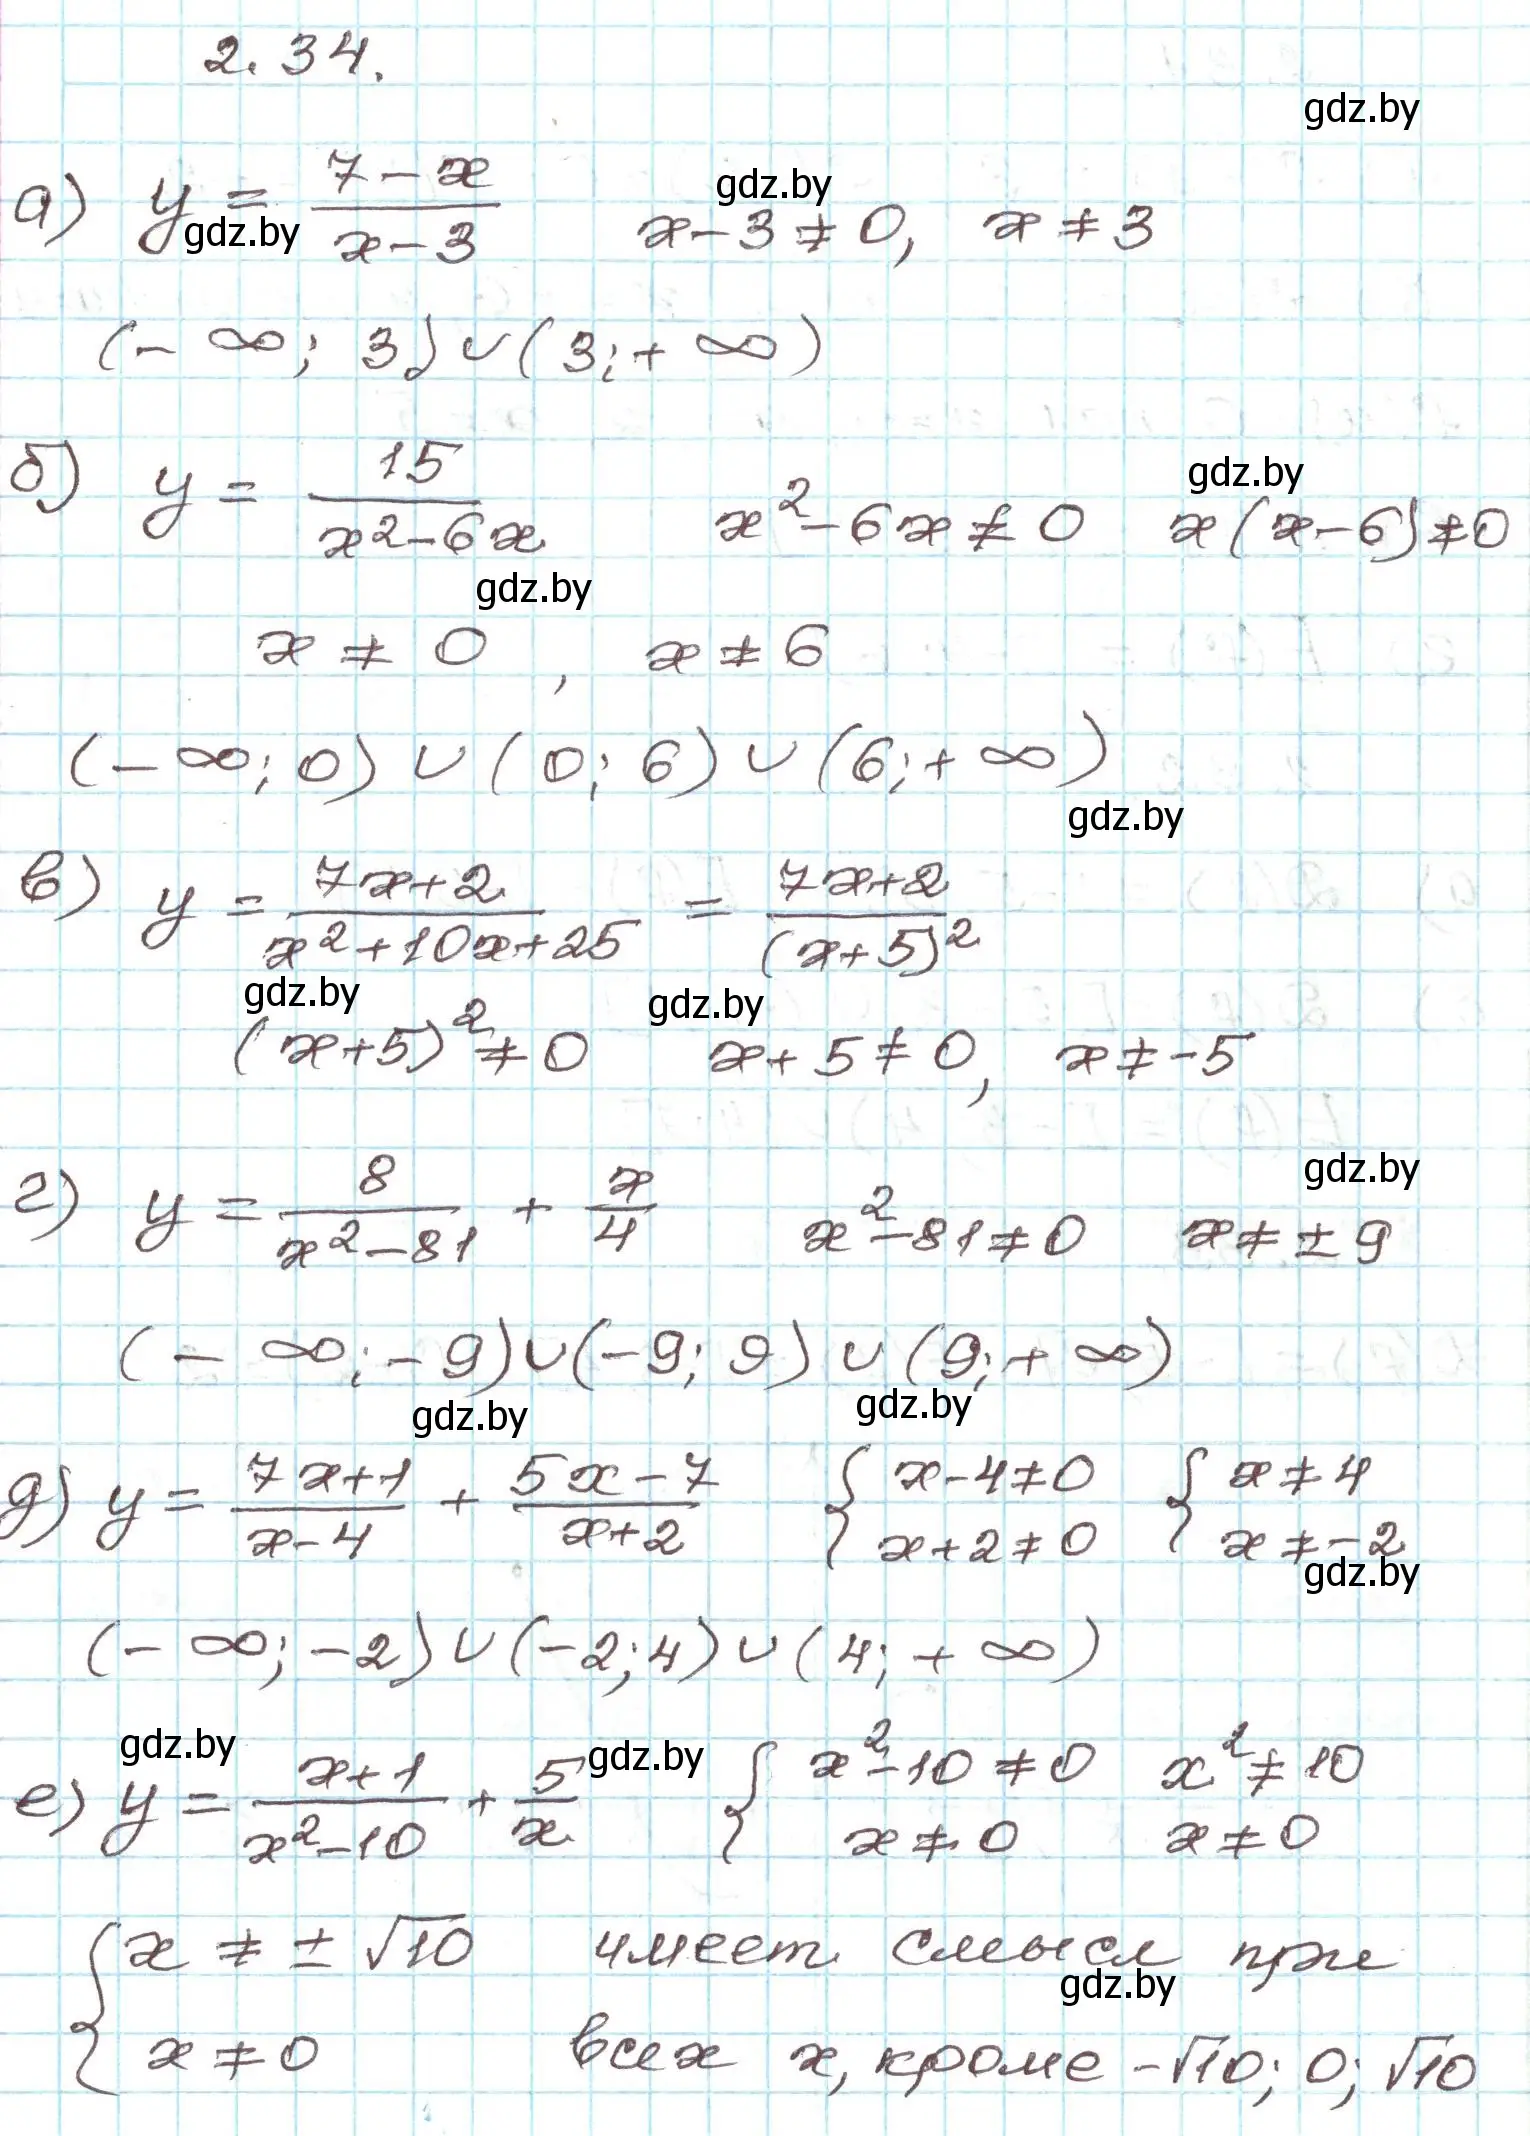 2.34.
gdz.by
а) y = (7 - x)/(x - 3)   x - 3 ≠ 0,   x ≠ 3
gdz.by gdz.by
(-∞; 3) ∪ (3; +∞)
б) y = 15/(x² - 6x)   x² - 6x ≠ 0   x(x - 6) ≠ 0
gdz.by
gdz.by
x ≠ 0 , x ≠ 6
(-∞; 0) ∪ (0; 6) ∪ (6; +∞)
gdz.by
в) y = (7x + 2)/(x² + 10x + 25) = (7x + 2)/(x + 5)²
gdz.by gdz.by
(x + 5)² ≠ 0   x + 5 ≠ 0,   x ≠ -5
gdz.by
г) y = 8/(x² - 81) + x/4   x² - 81 ≠ 0   x ≠ ± 9
(-∞; -9) ∪ (-9; 9) ∪ (9; +∞)
gdz.by gdz.by
д) y = (7x + 1)/(x - 4) + (5x - 7)/(x + 2)   { x - 4 ≠ 0   { x ≠ 4
x + 2 ≠ 0   x ≠ -2
gdz.by
(-∞; -2) ∪ (-2; 4) ∪ (4; +∞)
gdz.by gdz.by
е) y = (x + 1)/(x² - 10) + 5/x   { x² - 10 ≠ 0   x² ≠ 10
x ≠ 0   x ≠ 0
{ x ≠ ± √10   имеет смысл при
gdz.by
x ≠ 0   всех x, кроме -√10; 0; √10